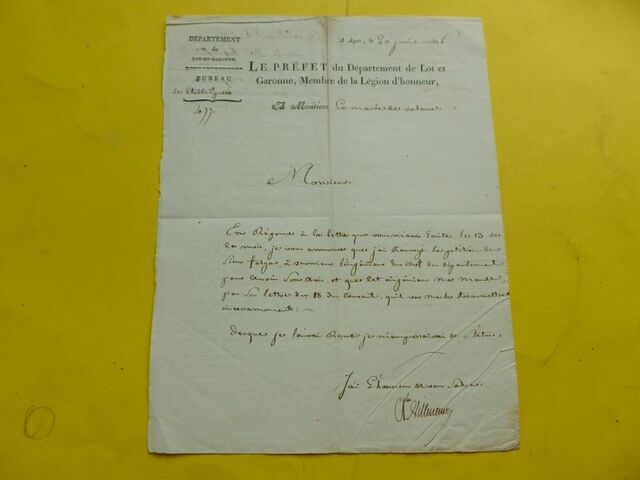 DÉPARTEMENT
de
LOT-ET-GARONNE.
BUREAU
477
A Agen, le 20 1806
LE PRÉFET du Département de Lot et
Garonne, Membre de la Légion d'honneur,
A Monsieur Le maire de
Monsieur
En Réponse à la lettre que vous m'avés Ecrite le 13 de
ce mois, je vous annonce que j'ai Renvoyé la petition du
Sieur fargue, à monsieur L'ingénieur En chef du département
pour avoir Son avis, et que cet ingénieur me mande,
par Sa lettre du 18 du Courant, qu'il va me la transmettre
incessamment.
Desque je l'aurai Reçue je m'empresserai de Statuer.
J'ai L'honneur de vous Saluer.